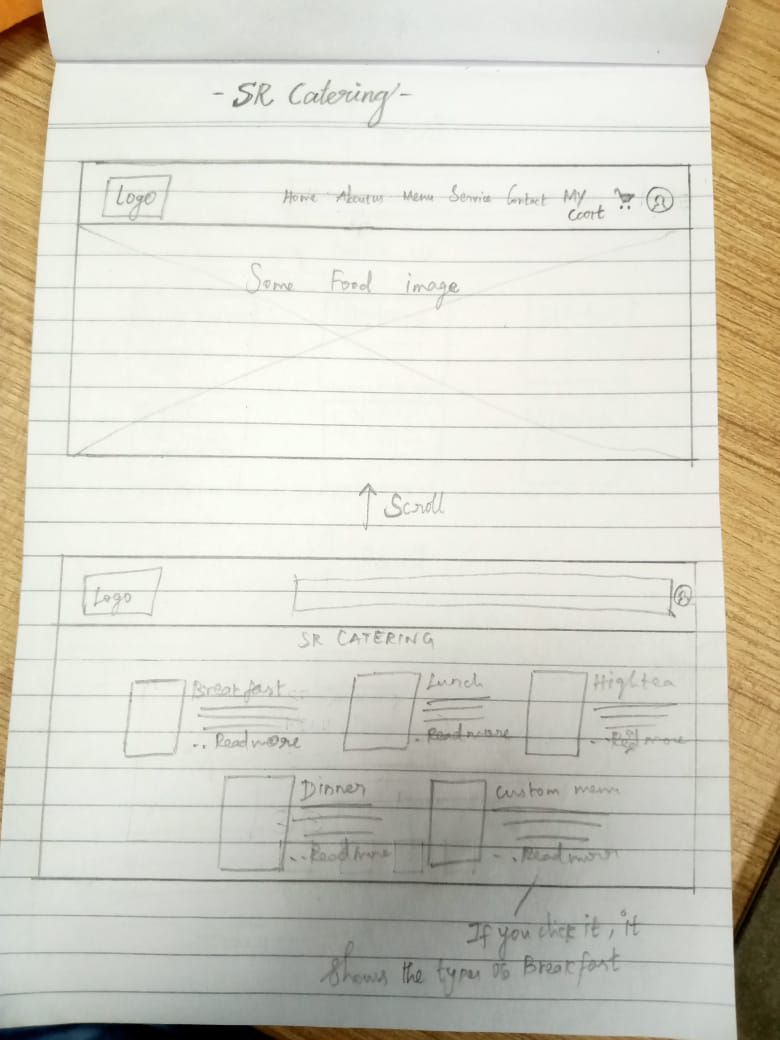 - SR Catering -
Logo Home Aboutus Menu Service Contact My
Ccort
Some Food image
Scroll
Logo
SR CATERING
Breakfast Lunch Hightea
.. Readmore . Readmore .. Read more
Dinner custom menu
... Readmore - .. Readmore
If you click it, it
Shows the types of Breakfast